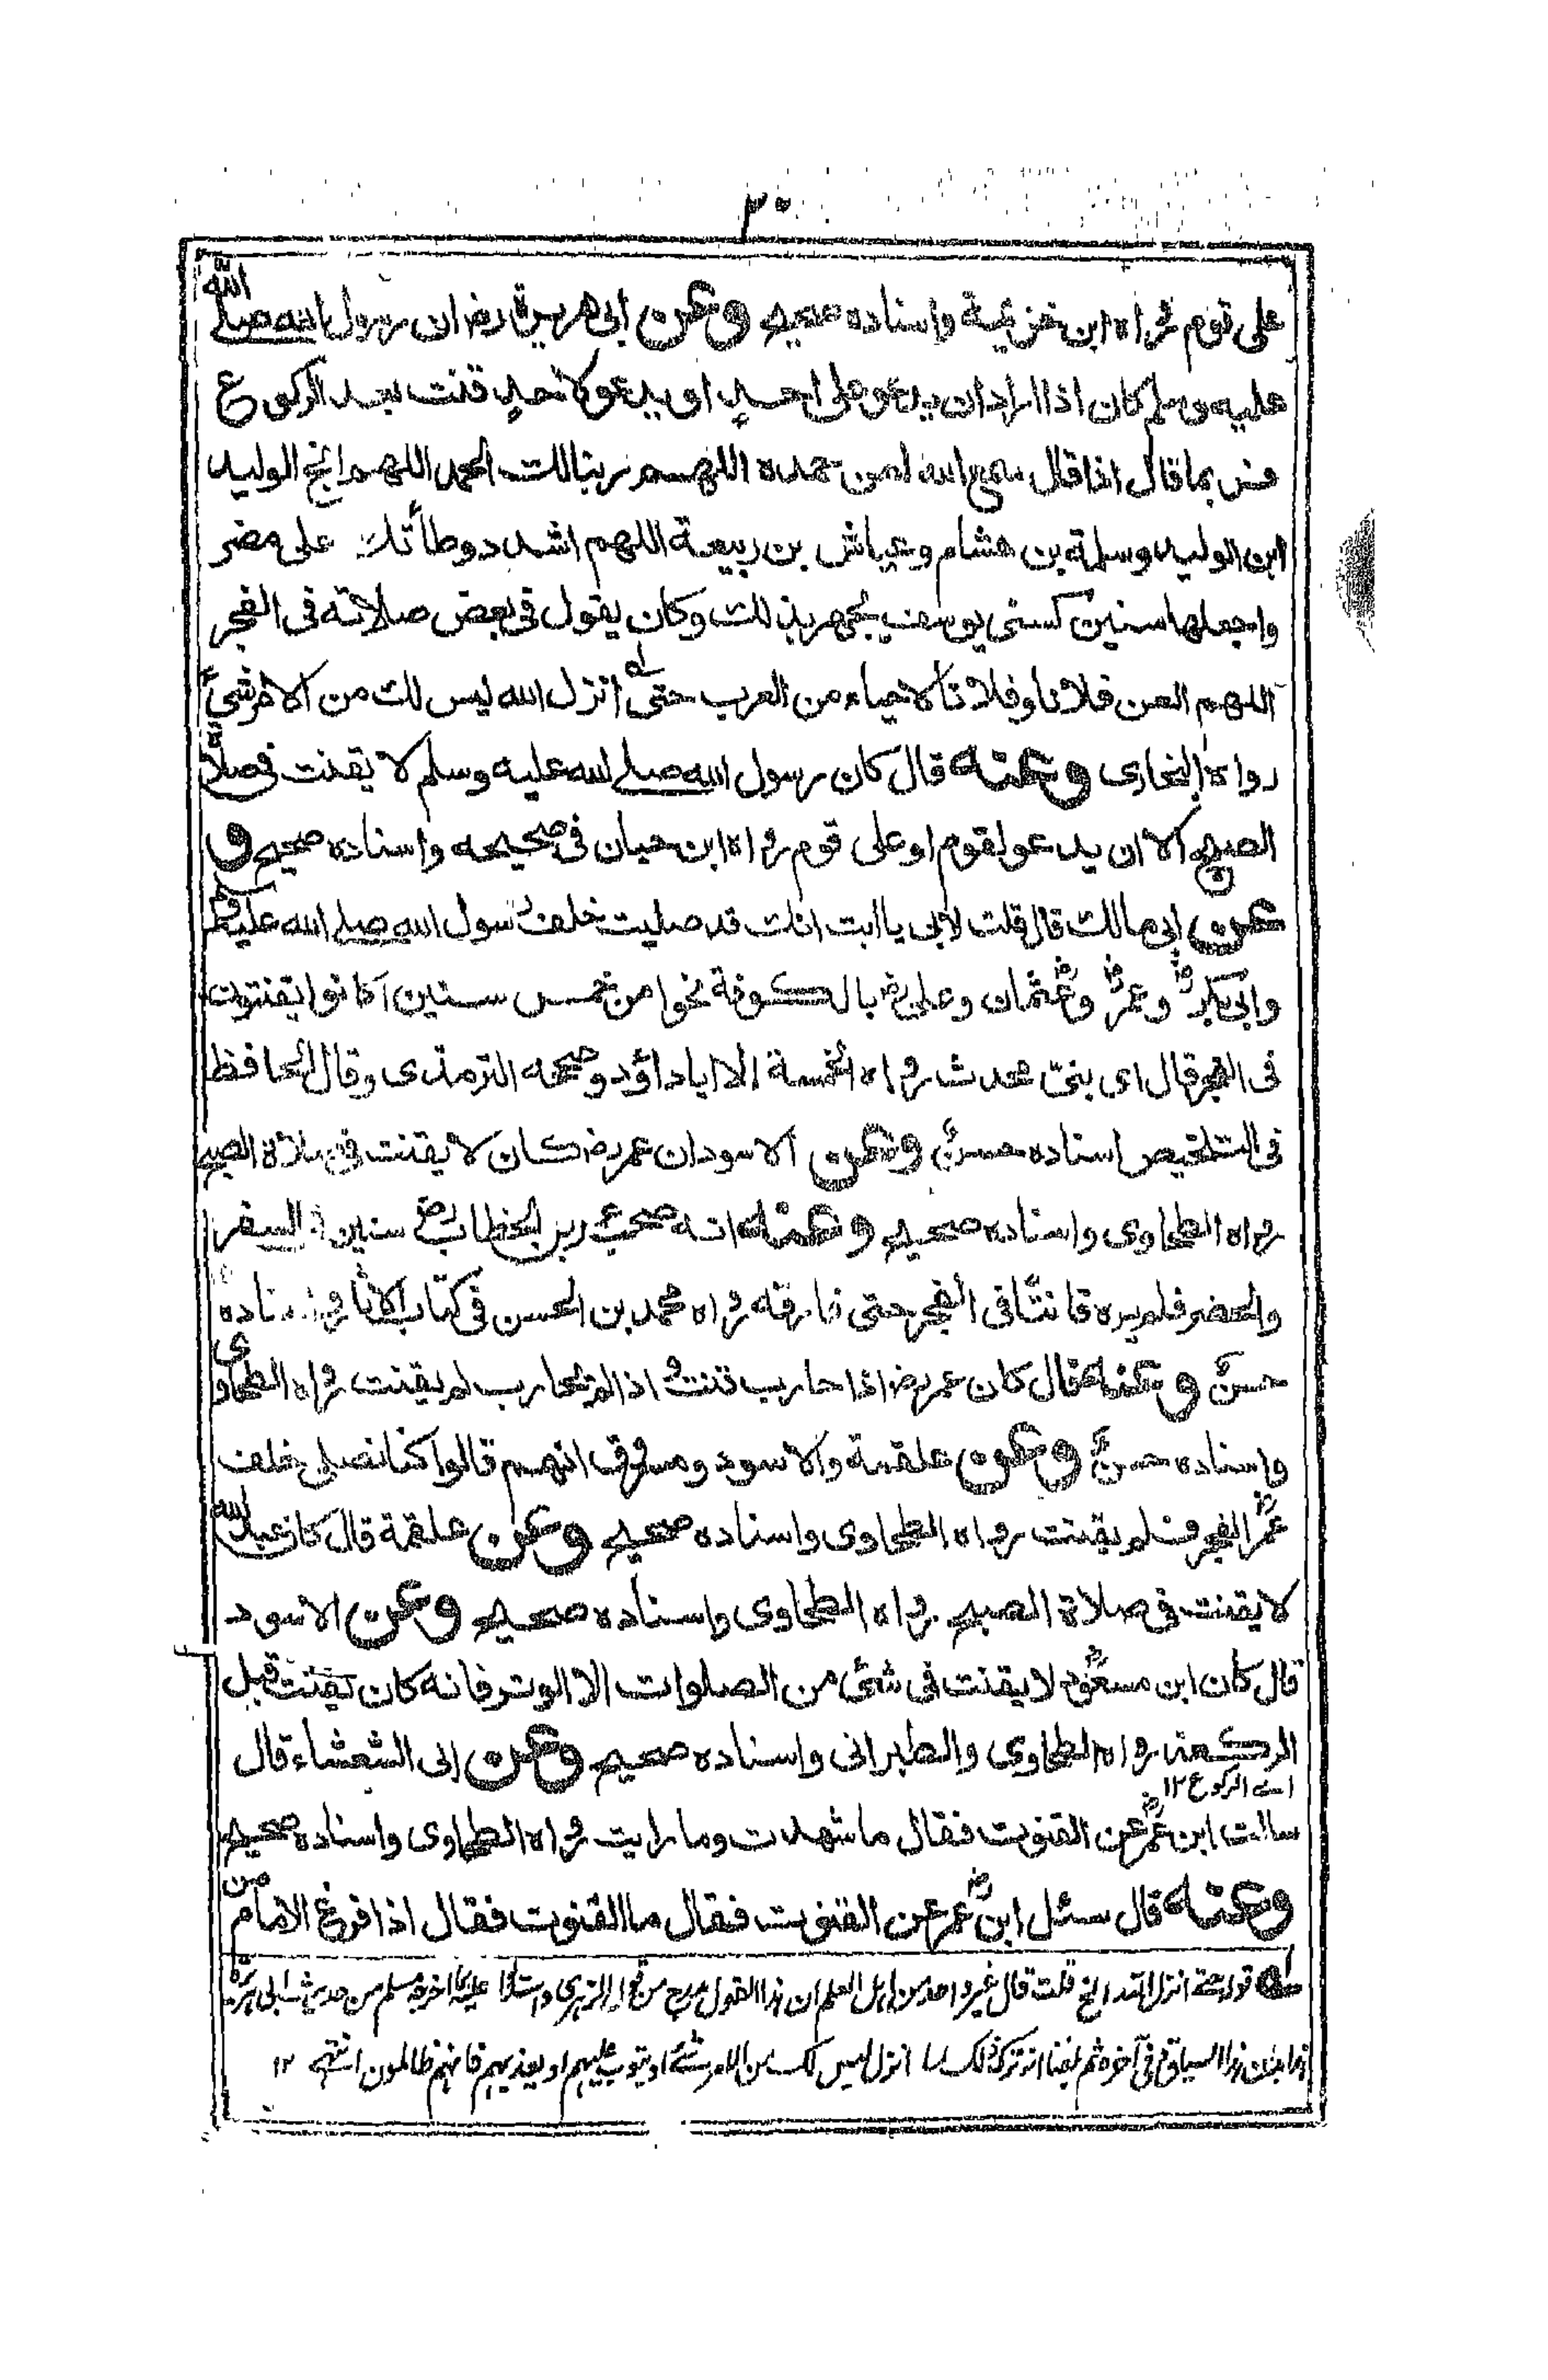 ٣٠
على قوم رواه ابن خزيمة واسناده صحيح وعن ابى هريرة رض ان رسول الله صلے الله
عليه وسلم كان اذا اراد ان يدعو على احدٍ او يدعو لاحدٍ قنت بعد الركوع
فربما قال اذا قال سمع الله لمن حمده اللهم ربنا لك الحمد اللهم انج الوليد
ابن الوليد وسلمة بن هشام وعياش بن ربيعة اللهم اشدد وطأتك على مضر
واجعلها سنين كسنى يوسف يجهر بذلك وكان يقول فى بعض صلاته فى الفجر
اللهم العن فلانا وفلانا لاحياء من العرب حتى له انزل الله ليس لك من الامر شئ
رواه البخارى وعنه قال كان رسول الله صلے الله عليه وسلم لا يقنت فى صلاة
الصبح الا ان يدعو لقوم او على قوم رواه ابن حبان فى صحيحه واسناده صحيح و
عن ابى مالك قال قلت لابى يا ابت انك قد صليت خلف رسول الله صلے الله عليه وسلم
وابى بكرؓ وعمرؓ وعثمانؓ وعلى رض بالكوفة نحوا من خمس سنين أكانوا يقنتون
فى الفجر قال اى بنىّ محدث رواه الخمسة الا ابا داؤد وصححه الترمذى وقال الحافظ
فى التلخيص اسناده حسنٌ وعن الاسود ان عمر رض كان لا يقنت فى صلاة الصبح
رواه الطحاوى واسناده صحيح وعنه انه صحب عمر بن الخطاب رض سنين فى السفر
والحضر فلم يره قانتًا فى الفجر حتى فارقه رواه محمد بن الحسن فى كتاب الاثار واسناده
حسنٌ وعنه قال كان عمر رض اذا حارب قنت واذا لم يحارب لم يقنت رواه الطحاوى
واسناده حسنٌ وعن علقمة والاسود ومسروق انهم قالوا كنا نصلى خلف
عمرؓ الفجر فلم يقنت رواه الطحاوى واسناده صحيح وعن علقمة قال كان عبد الله
لا يقنت فى صلاة الصبح رواه الطحاوى واسناده صحيح وعن الاسود
قال كان ابن مسعودؓ لا يقنت فى شئ من الصلوات الا الوتر فانه كان يقنت قبل
الركعة رواه الطحاوى والطبرانى واسناده صحيح وعن ابى الشعثاء قال
اے الركوع ١٢
سالت ابن عمرؓ عن القنوت فقال ما شهدت وما رايت رواه الطحاوى واسناده صحيح
وعنه قال سئل ابن عمرؓ عن القنوت فقال ما القنوت فقال اذا فرغ الامام من
له قوله حتے انزل الله الخ قلت قال غير واحد من اهل العلم ان هذا القول مدرج من قول الزهرى واستدلوا عليه بما اخرجه مسلم من حديث ابى هريرة
هذا السياق وفى آخره ثم بلغنا انه ترك ذلك لما انزل ليس لك من الامر شئ او يتوب عليهم او يعذبهم فانهم ظالمون انتهے ١٢